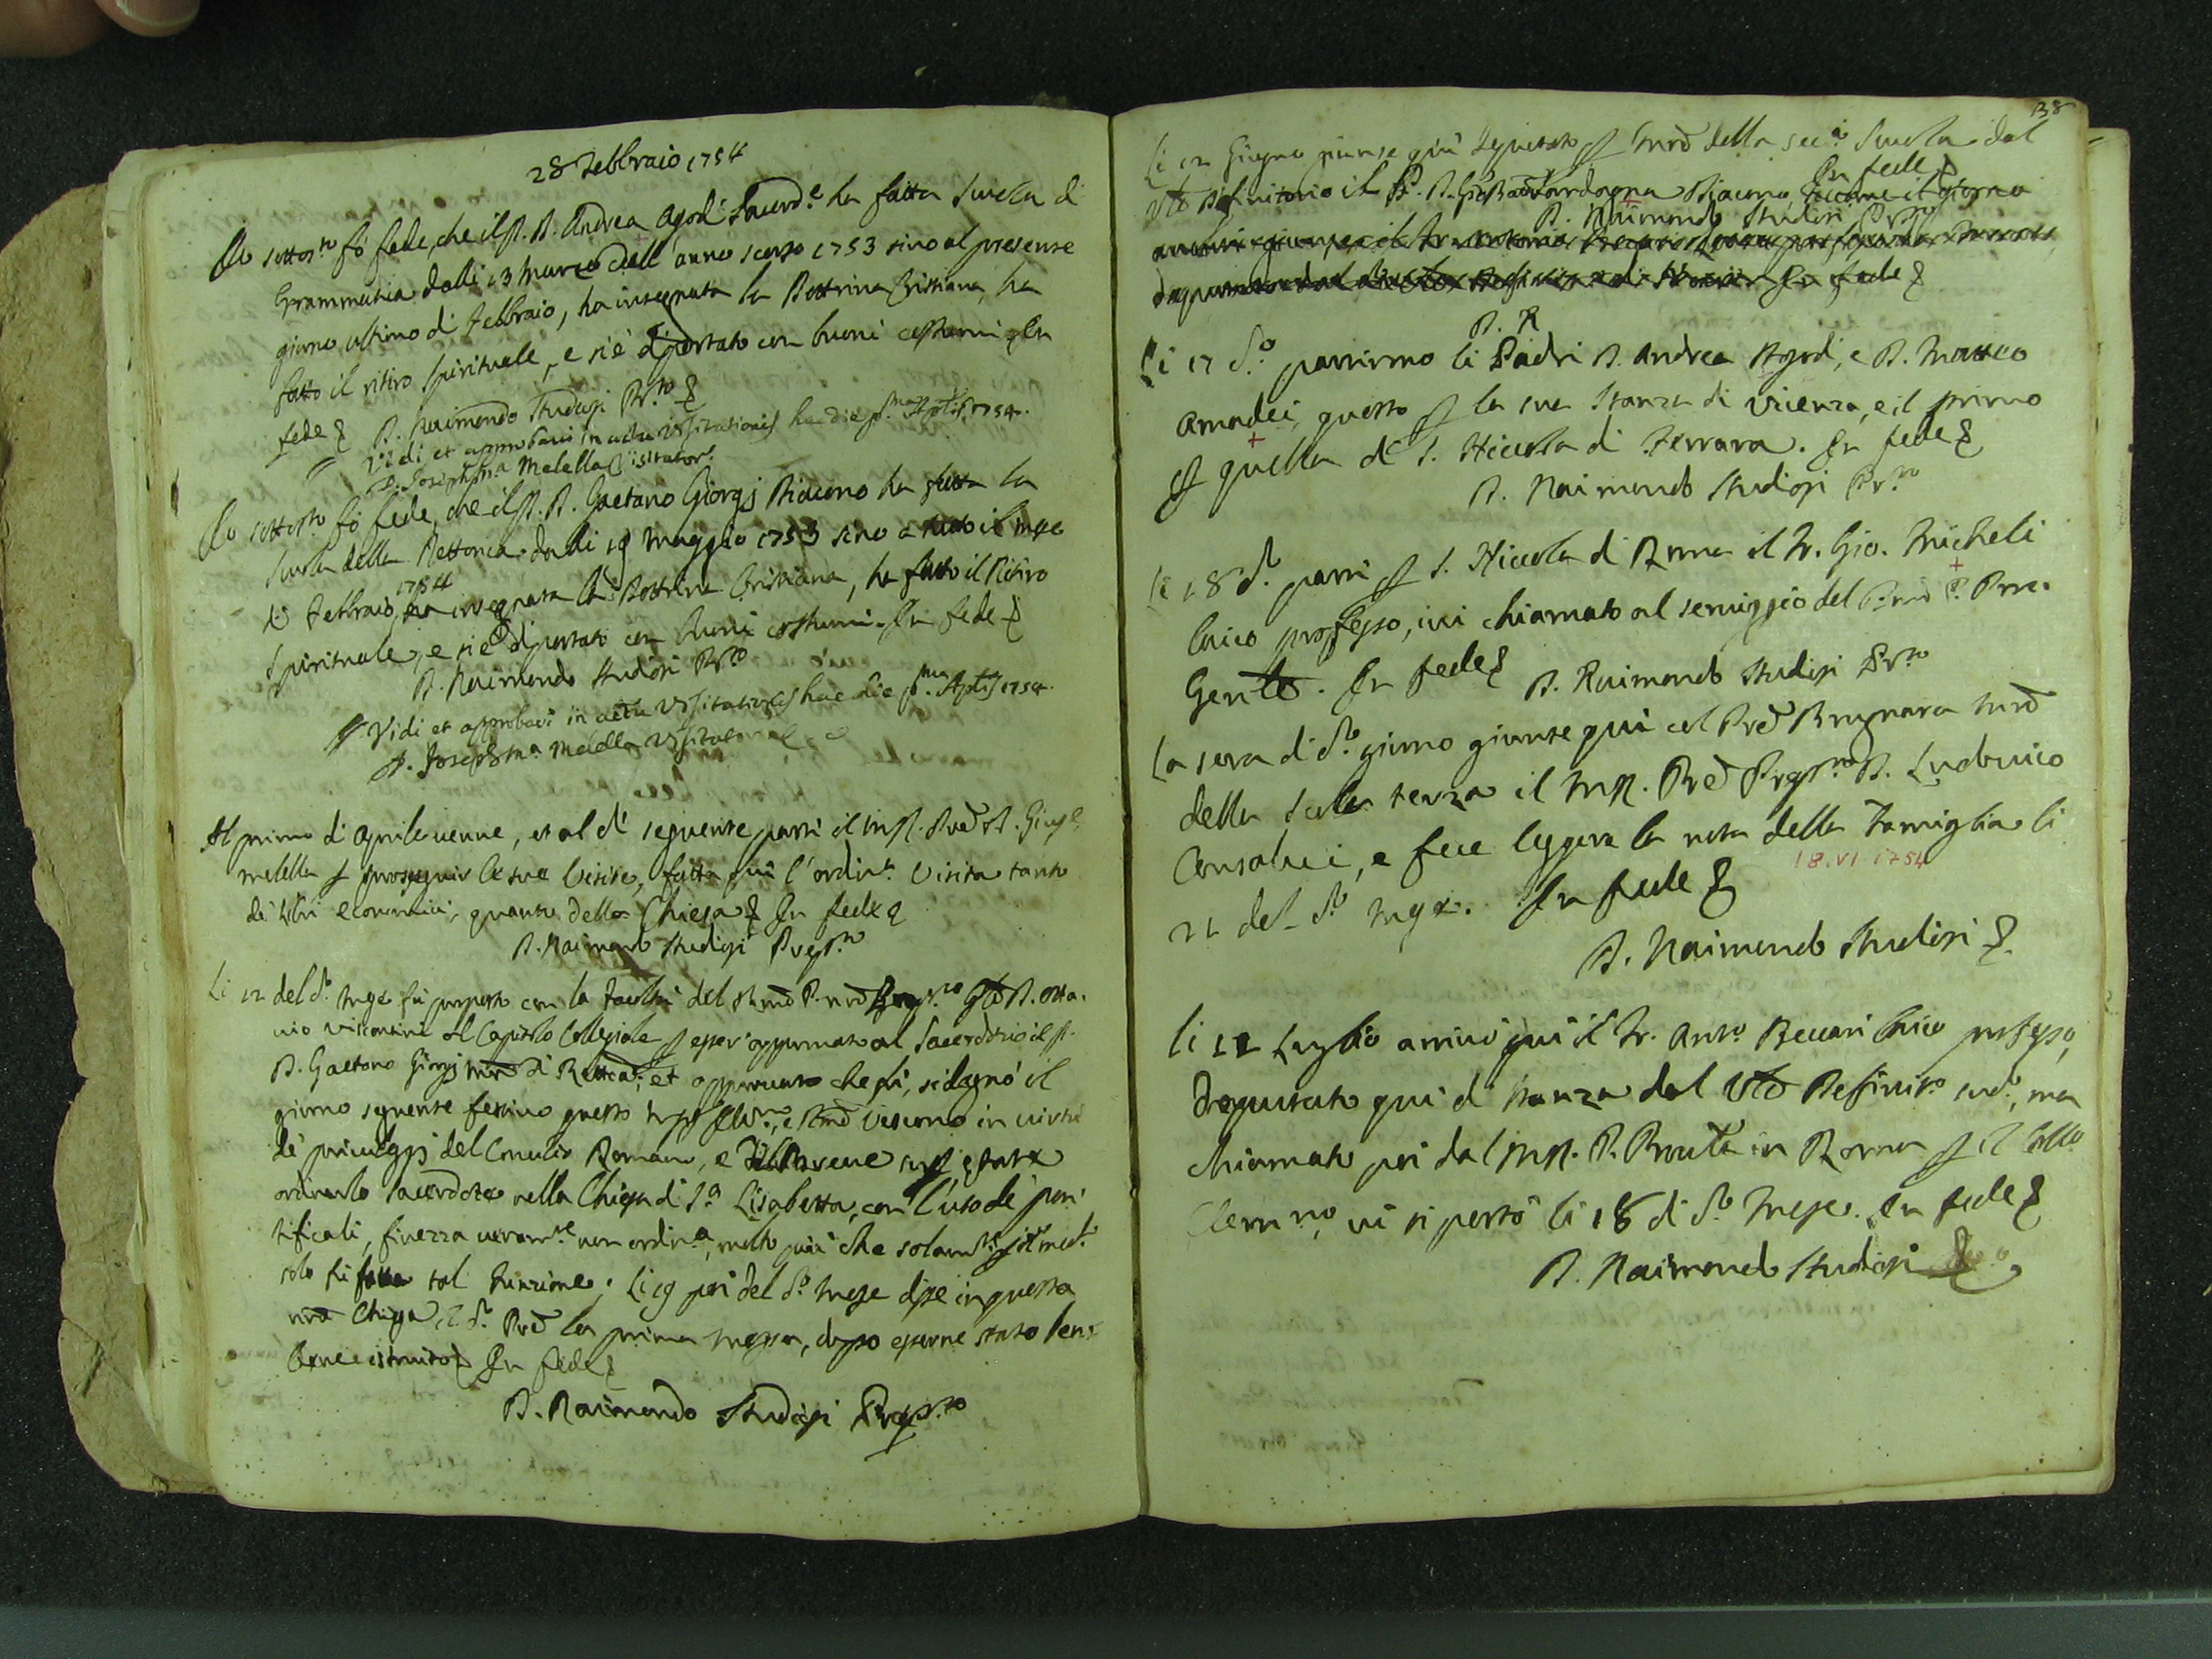 28 Febbraio 1754
Io sottos.to fò fede, che il P. D. Andrea Agodi Sacerd.e ha fatta Scuola di
Grammatica dalli 13 Marzo dell'anno scorso 1753 sino al presente
giorno ultimo di Febbraio, ha insegnata la Dottrina Cristiana, ha
fatto il ritiro Spirituale, e si è diportato con buoni costumi. In
fede &
D. Raimondo Studiosi Pr.to &
Vidi et approbavi in actu visitationis hac die p.ma Aplis 1754.
D. Joseph M.a Melella Visitator.
Io sottosto fò fede, che il P. D. Gaetano Giorgj Diacono ha fatta la
Scuola della Rettorica dalli 19 Maggio 1753 sino a tutto il mese
di Febbraio 1754 ha insegnata la Dottrina Cristiana, ha fatto il Ritiro
Spirituale, e si è diportato con buoni costumi. In fede &
D. Raimondo Studiosi Pr.to
Vidi et approbavi in actu Visitationis hac die p.ma Aplis 1754.
D. Joseph M.a Melella Visitator
Al primo di Aprile venne, et al dì seguente partì il M.R. Pre D. Gius.e
Melella p proseguir le sue Visite, fatta qui l'ordin.a Visita tanto
de' libri economici, quanto della Chiesa & In fede &
D. Raimondo Studiosi Prep.to
Li 12 del d.o Mese fù proposto con la facoltà del Rmo P. nro Prep.to Gle D. Otta-
vio Visconti al Capitolo Collegiale p esser approvato al Sacerdozio il P.
D. Gaetano Giorgj Mro di Rettca; et approvato che fù, si degnò il
giorno seguente festivo questo Vescovo in virtù
de' privilegj del Concilio Romano, e
ordinarlo Sacerdote nella Chiesa di S.a Lisabetta, con l'uso de' pon-
tificali, finezza veram.te non ordin.a, molto più che solam.te
solo fù fatta tal funzione; Li 19 poi del d.o Mese disse in questa
nra Chiesa il d.o Pre la prima Messa, dopo esserne stato ben
bene istruito & In fede &
D. Raimondo Studiosi Prep.to
138
Li 12 Giugno giunse qui deputato p Mro della sec.a Scuola dal
Vle Definitorio il P. D. Gio Batta Sardagna Diacono, In fede &
D. Raimondo Studiosi Pr.to
In fede &
D. R
Li 17 d.o partirono li Padri D. Andrea Agodi, e D. Matteo
Amadei, questo p la sua Stanza di Vicenza, e il primo
p quella di S. Niccola di Ferrara. In fede &
D. Raimondo Studiosi Pr.to
Li 18 d.o partì p S. Niccola di Roma il Fr. Gio. Micheli
laico professo, ivi chiamato al servizio del P. Proc.
Genle. In fede & D. Raimondo Studiosi Pr.to
La sera di d.o giorno giunse qui col Pre Brugnara Mro
della Scola terza il M.R. Pre Prep.to D. Ludovico
Consoluci, e fece leggere la nota della Famiglia li
18.VI.1754
21 del d.o Mese. In fede &
D. Raimondo Studiosi &
Li 12 Luglio arrivò qui il Fr. Ant.o Beccari laico professo,
deputato qui di stanza dal Vle Deffinit.o sud.o, ma
chiamato poi dal M.R. P. Provle in Roma p il Coll.o
Clem.no, vi si portò li 18 di d.o Mese. In fede &
D. Raimondo Studiosi &